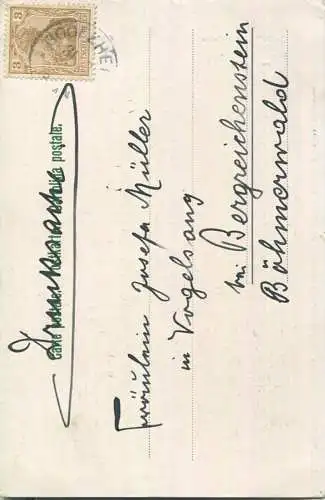 Drucksache
Carte postale.
postale.
Fräulein Josefa Müller
in Vogelsang
bei Bergreichenstein
Böhmerwald
3
3